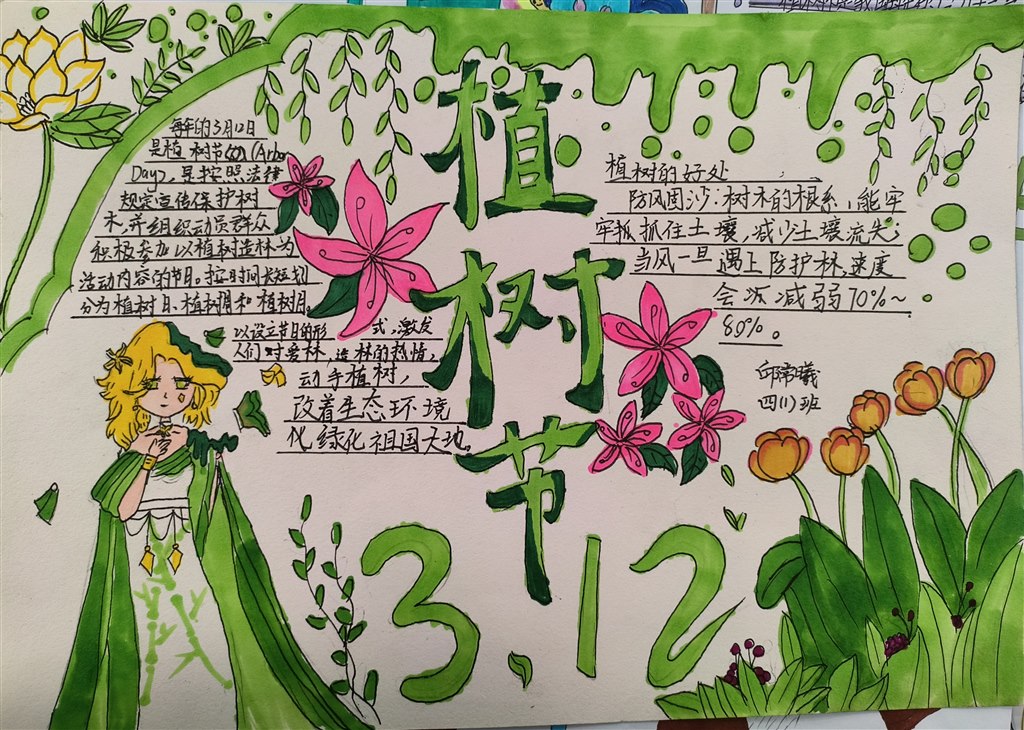 植树节
3.12
每年的3月12日
是植树节(Arbor
Day),是按照法律
规定宣传保护树
木,并组织动员群众
积极参加以植树造林为
活动内容的节日。按时间长短划
分为植树日、植树周和植树月。
以设立节日的形式,激发
人们对爱林,造林的热情,
动手植树,
改着生态环境
化绿化祖国大地。
植树的好处
防风固沙:树木的根系,能牢
牢抓住土壤,减少土壤流失;
当风一旦遇上防护林,速度
会派减弱70%~
80%。
四(1)班